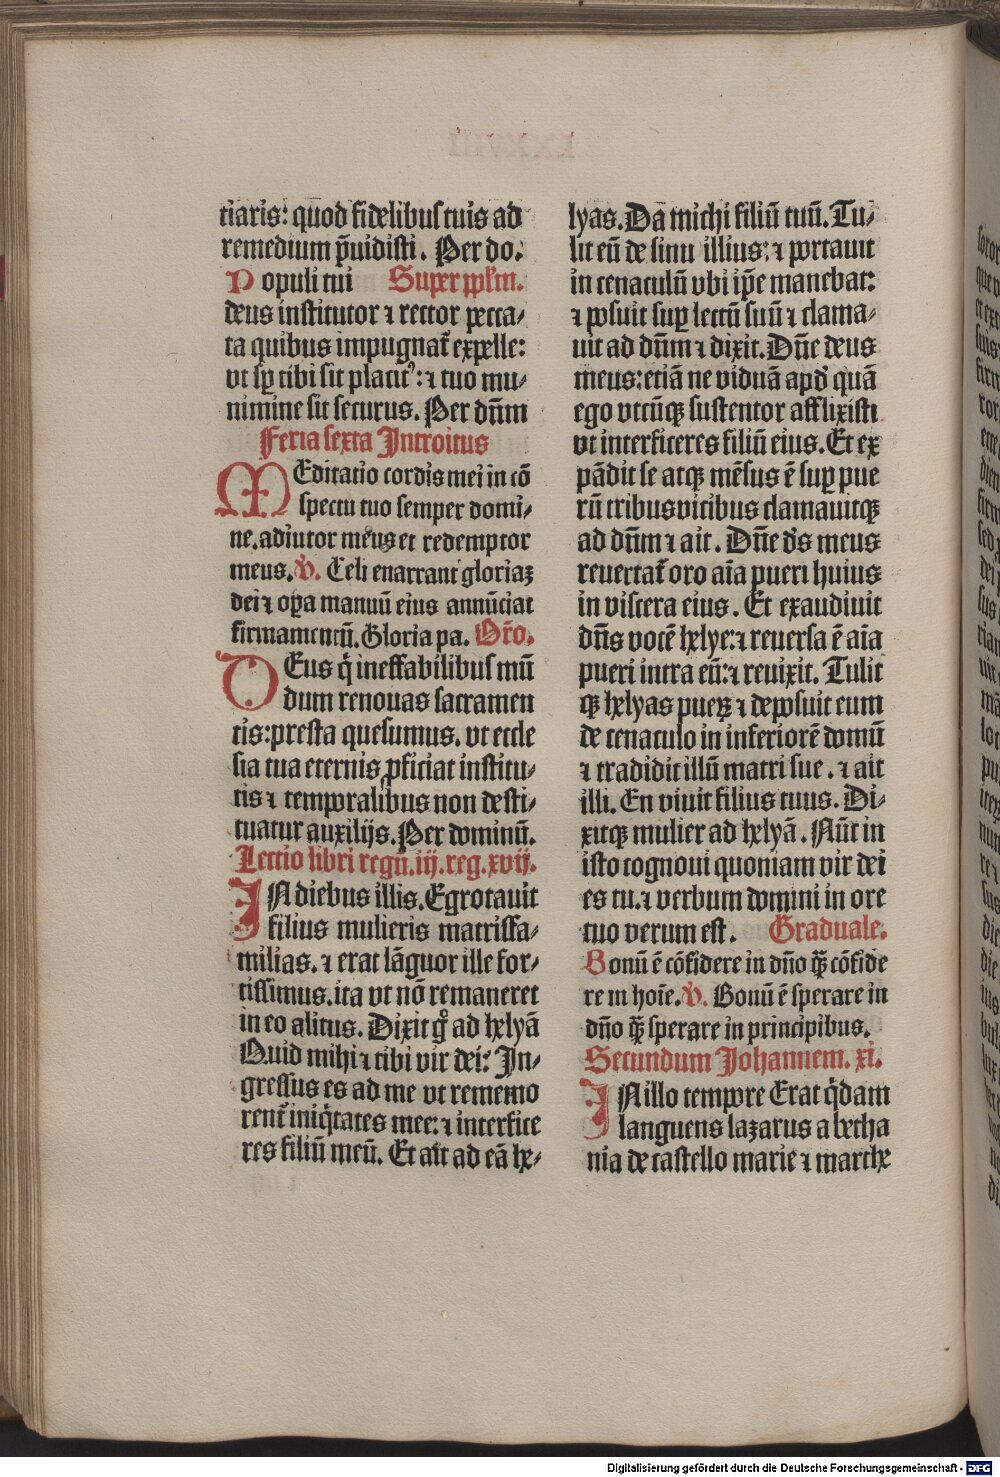 tiaris: quod fidelibus tuis ad
remedium p̄uidisti. Per do.
Populi tui Super pp̄lm.
deus institutor ⁊ rector pecca⸗
ta quibus impugnat᷑ expelle:
vt sp̄ tibi sit placit⁹: ⁊ tuo mu⸗
nimine sit securus. Per dn̄m
Feria sexta Introitus
MEditatio cordis mei in cō
spectu tuo semper domi⸗
ne. adiutor meus et redemptor
meus. V̉. Celi enarrant gloriaꝫ
dei ⁊ oꝑa manuū eius annūciat
firmamentū. Gloria pa. Or̄o.
DEus q̇ ineffabilibus mū
dum renouas sacramen
tis: presta quesumus. vt eccle
sia tua eternis ꝓficiat institu⸗
tis ⁊ temporalibus non desti⸗
tuatur auxilijs. Per dominū.
Lectio libri regū. iij. reg. xvij.
IN diebus illis. Egrotauit
filius mulieris matrisfa⸗
milias. ⁊ erat lāguor ille for⸗
tissimus. ita vt nō remaneret
in eo alitus. Dixit gͦ ad helyā
Quid mihi ⁊ tibi vir dei? In⸗
gressus es ad me vt rememo
rent᷑ iniq̇tates mee: ⁊ interfice
res filiū meū. Et ait ad eā he⸗
lyas. Da michi filiū tuū. Tu⸗
lit eū de sinu illius: ⁊ portauit
in cenaculū vbi ip̄e manebat:
⁊ posuit suꝑ lectū suū ⁊ clama⸗
uit ad dn̄m ⁊ dixit. Dn̄e deus
meus: etiā ne viduā apd̓ quā
ego vtcūqꝫ sustentor afflixisti
vt interficeres filiū eius. Et ex
pādit se atqꝫ mēsus ē suꝑ pue
rū tribus vicibus clamauitqꝫ
ad dn̄m ⁊ ait. Dn̄e d̓s meus
reuertat᷑ oro aīa pueri huius
in viscera eius. Et exaudiuit
dn̄s vocē helye: ⁊ reuersa ē aīa
pueri intra eū: ⁊ reuixit. Tulit
qꝫ helyas pueꝝ ⁊ deposuit eum
de cenaculo in inferiorē domū
⁊ tradidit illū matri sue. ⁊ ait
illi. En viuit filius tuus. Di⸗
xitqꝫ mulier ad helyā. Nūc in
isto cognoui quoniam vir dei
es tu. ⁊ verbum domini in ore
tuo verum est. Graduale.
Bonū ē cōfidere in dn̄o qꝫ̄ cōfide
re in hoīe. V̉. Bonū ē sperare in
dn̄o qꝫ̄ sperare in principibus.
Secundum Johannem. xi.
IN illo tempore Erat q̇dam
languens lazarus a betha
nia de castello marie ⁊ marthe
Digitalisierung gefördert durch die Deutsche Forschungsgemeinschaft - DFG